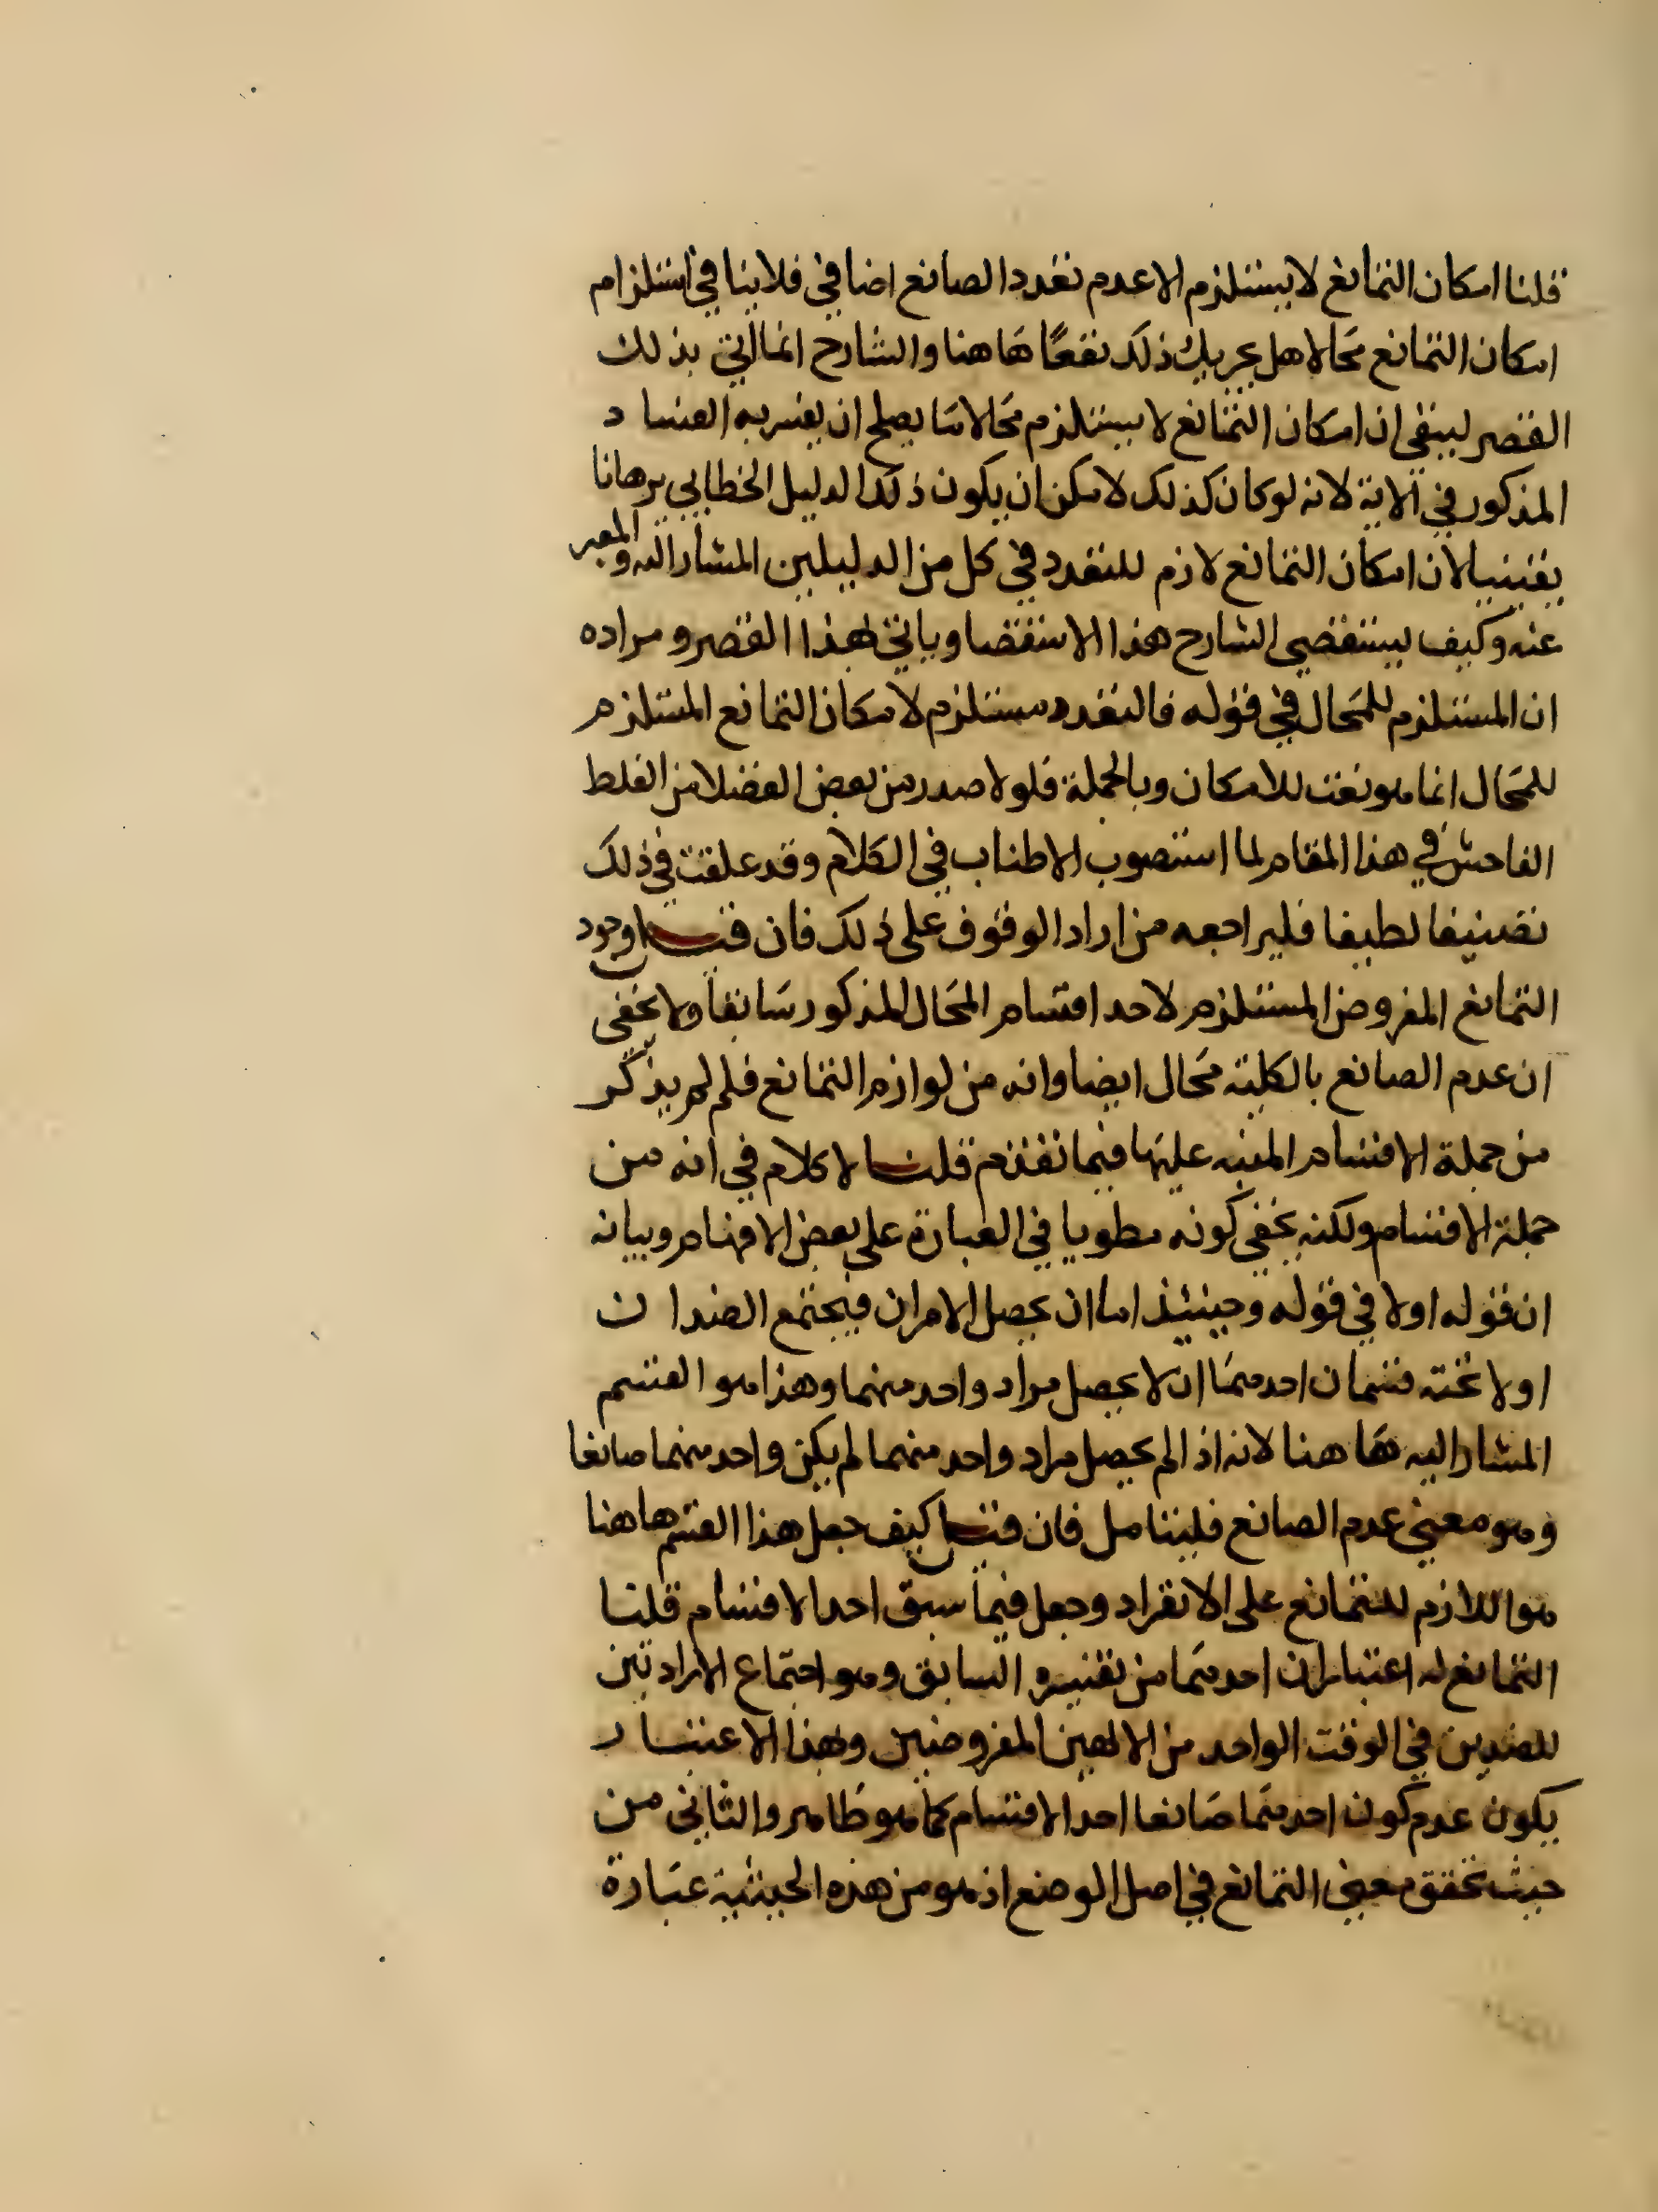 قلنا امكان التمانع لا يستلزم الا عدم تعدد الصانع اضافي فلا ينافي استلزام
امكان التمانع محالا هل يجر بك ذلك نفعًا هاهنا والشارح انما اتي بذلك
القصر لينفي ان امكان التمانع لا يستلزم محالا ما يصلح ان يفسر به الفساد
المذكور في الاية لانه لو كان كذلك لامكن ان يكون ذلك الدليل الخطابي برهانا
يقينيا لان امكان التمانع لازم للتعدد في كل من الدليلين المشار اليه والمعبر
عنه وكيف يستقصي الشارح هذا الاستقصا وياتي لهذا القصر ومراده
ان المستلزم للمحال في قوله فالتعدد مستلزم لامكان التمانع المستلزم
للمحال انما هو نعت للامكان وبالجملة فلولا صدر من بعض الفضلا من الغلط
الفاحش في هذا المقام لما استصوب الاطناب في الكلام وقد علقت في ذلك
تصنيفا لطيفا فليراجعه من اراد الوقوف على ذلك فان قيل وجود
التمانع المفروض المستلزم لاحد اقسام المحال المذكور سابقا ولا يخفى
ان عدم الصانع بالكلية محال ايضا وانه من لوازم التمانع فلم لم يذكر
من جملة الاقسام المنبه عليها فيما تقدم قلنا لا كلام في انه من
جملة الاقسام ولكنه يخفى كونه مطويا في العبارة على بعض الافهام وبيانه
ان قوله اولا في قوله وحينئذ اما ان يحصل الامران فيجتمع الضدان
اولا تحته قسمان احدهما ان لا يحصل مراد واحد منهما وهذا هو القسم
المشار اليه هاهنا لانه اذا لم يحصل مراد واحد منهما لم يكن واحد منهما صانعا
وهو معنى عدم الصانع فليتامل فان قيل كيف جعل هذا القسم هاهنا
هو اللازم للتمانع على الانفراد وجعل فيما سبق احد الاقسام قلنا
التمانع له اعتباران احدهما من تفسيره السابق وهو اجتماع الارادتين
للضدين في الوقت الواحد من الالهين المفروضين وبهذا الاعتبار
يكون عدم كون احدهما صانعا احد الاقسام كما هو ظاهر والثاني من
حيث تحقق معنى التمانع في اصل الوضع اذ هو من هذه الحيثية عبارة